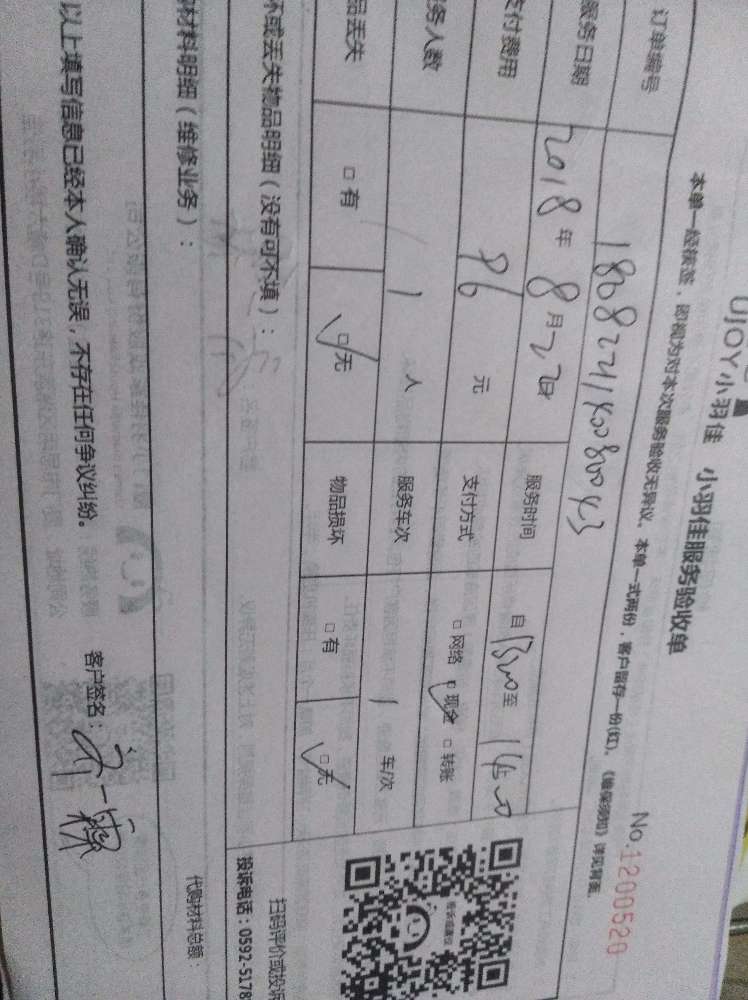 UJOY小羽佳 小羽佳服务验收单
No.1200520
本单一经核签，即视为对本次服务验收无异议。本单一式两份，客户留存一份(红)。《维保须知》详见背面。
订单编号 180822140080043
服务日期 2018年8月22日 服务时间 自1300至
支付费用 96元 支付方式 □网络 □现金 □转账
务人数 1人 服务车次 1车/次
品丢失 □有 □无 物品损坏 □有 □无
扫码评价或投诉
投诉电话：0592-5178
坏或丢失物品明细（没有可不填）：
购材料明细（维修业务）： 代购材料总额：
以上填写信息已经本人确认无误，不存在任何争议纠纷。 客户签名：